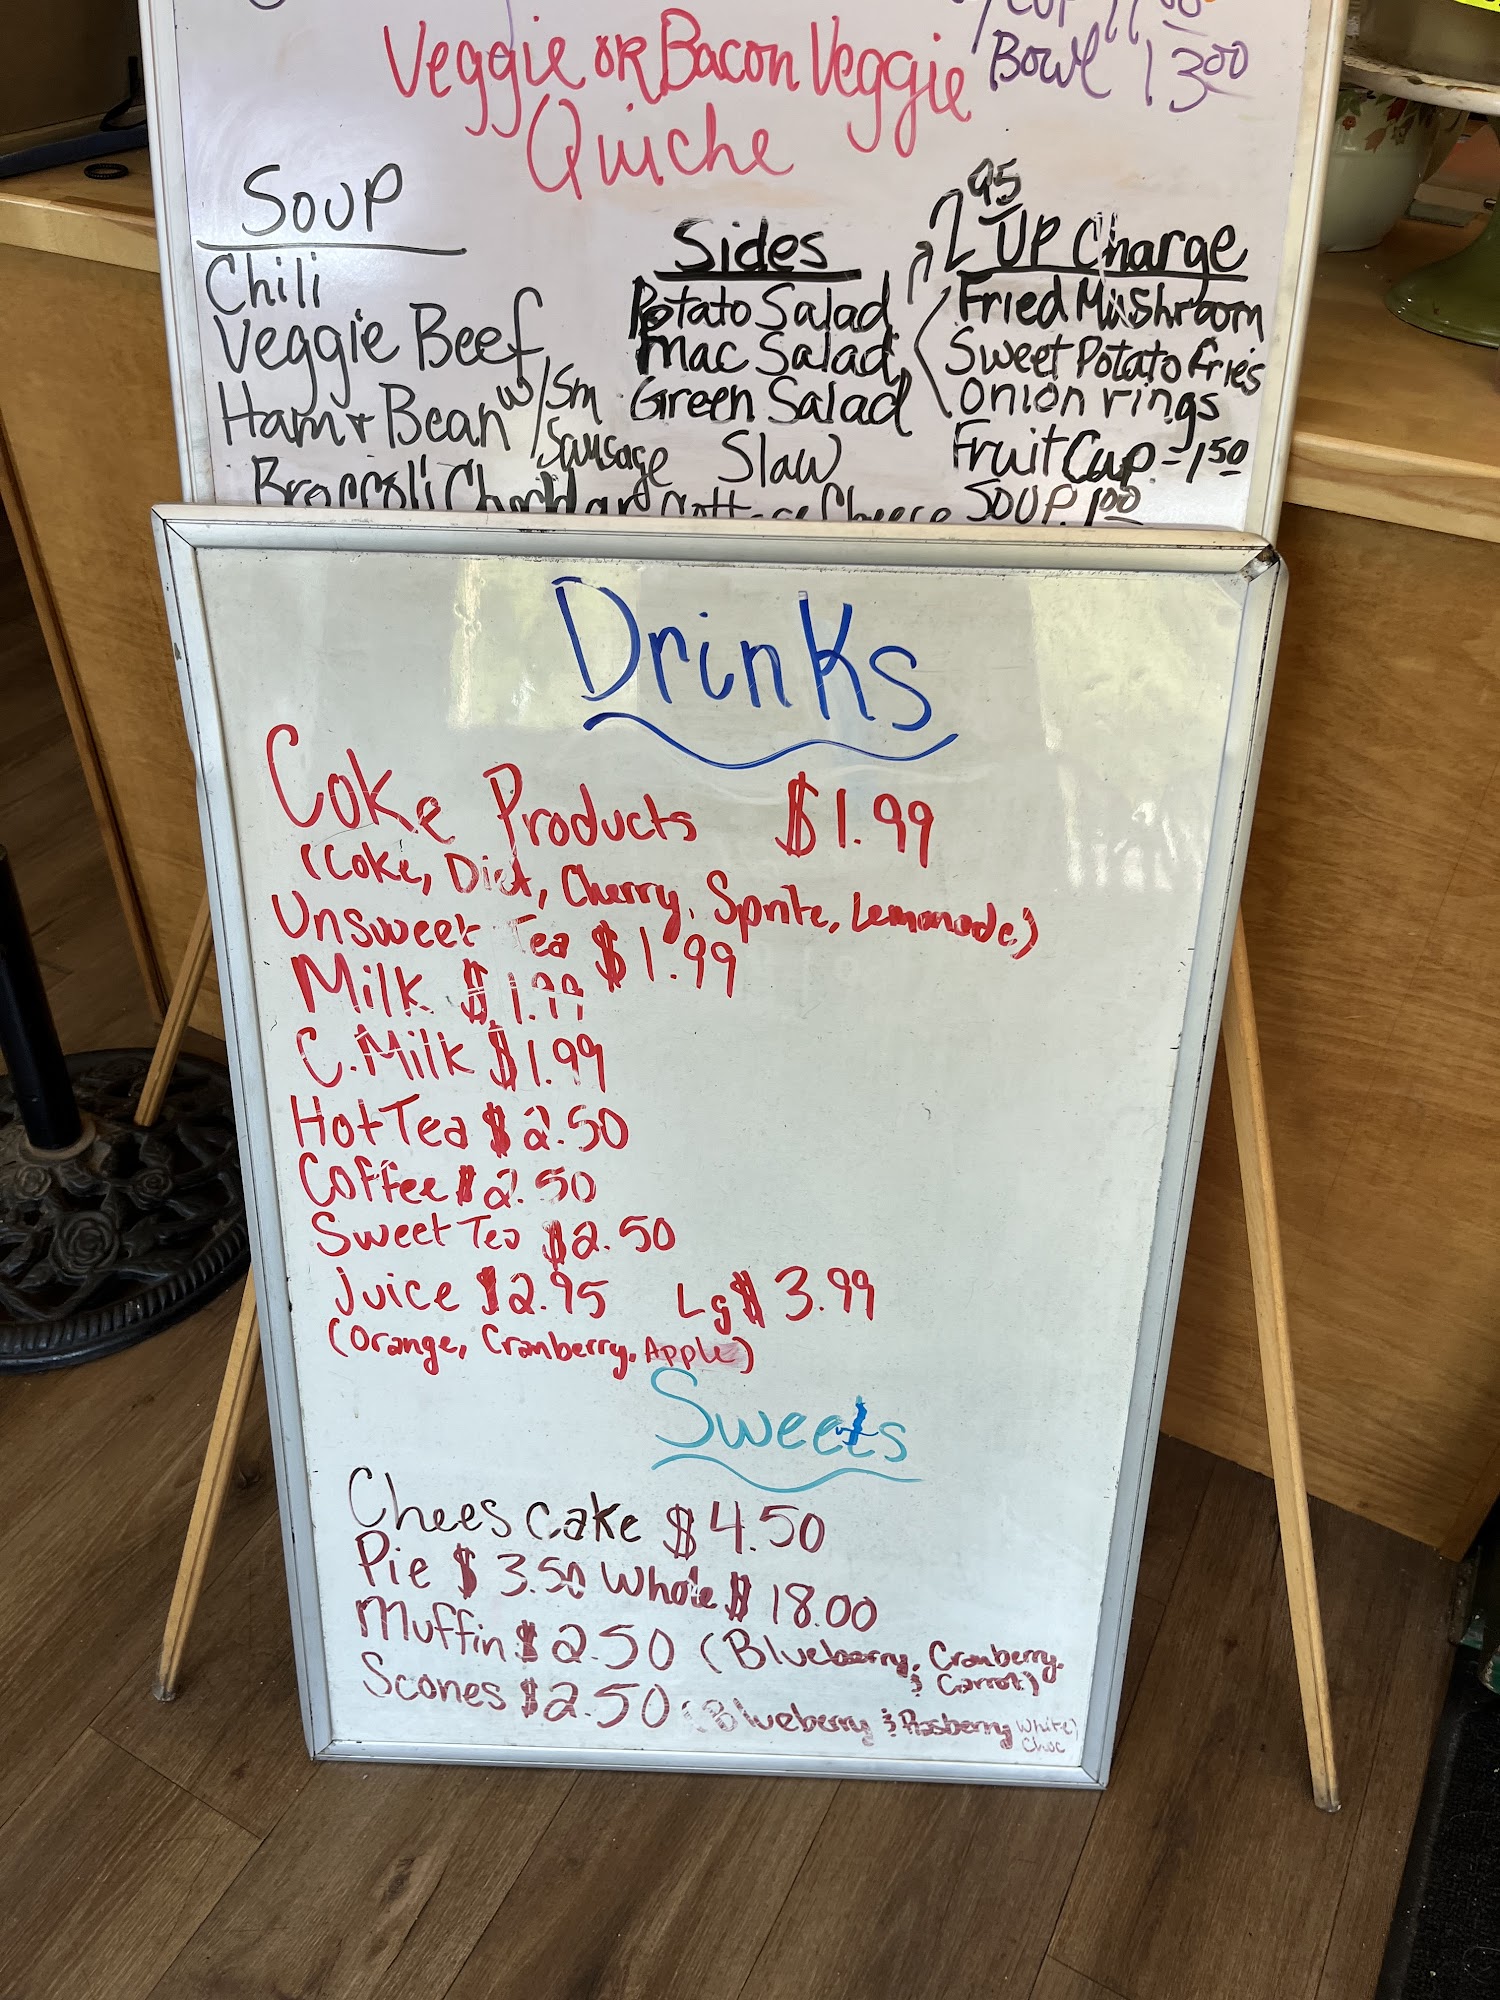 Bowl 13.00
Veggie or Bacon Veggie
Quiche
Soup
Chili
Veggie Beef
Ham + Bean w/ Sm Sausage
Broccoli Cheddar
Sides
Potato Salad
Mac Salad
Green Salad
Slaw
Cottage Cheese
2.95 UP Charge
Fried Mushroom
Sweet Potato Fries
Onion rings
Fruit Cup = 1.50
Soup 1.00
Drinks
Coke Products $1.99
(Coke, Diet, Cherry, Sprite, Lemonade)
Unsweet Tea $1.99
Milk $1.99
C. Milk $1.99
Hot Tea $2.50
Coffee $2.50
Sweet Tea $2.50
Juice $2.95 Lg $3.99
(Orange, Cranberry, Apple)
Sweets
Chees cake $4.50
Pie $3.50 Whole $18.00
Muffin $2.50 (Blueberry, Cranberry,
& Carrot)
Scones $2.50 (Blueberry & Rasberry White
Choc)